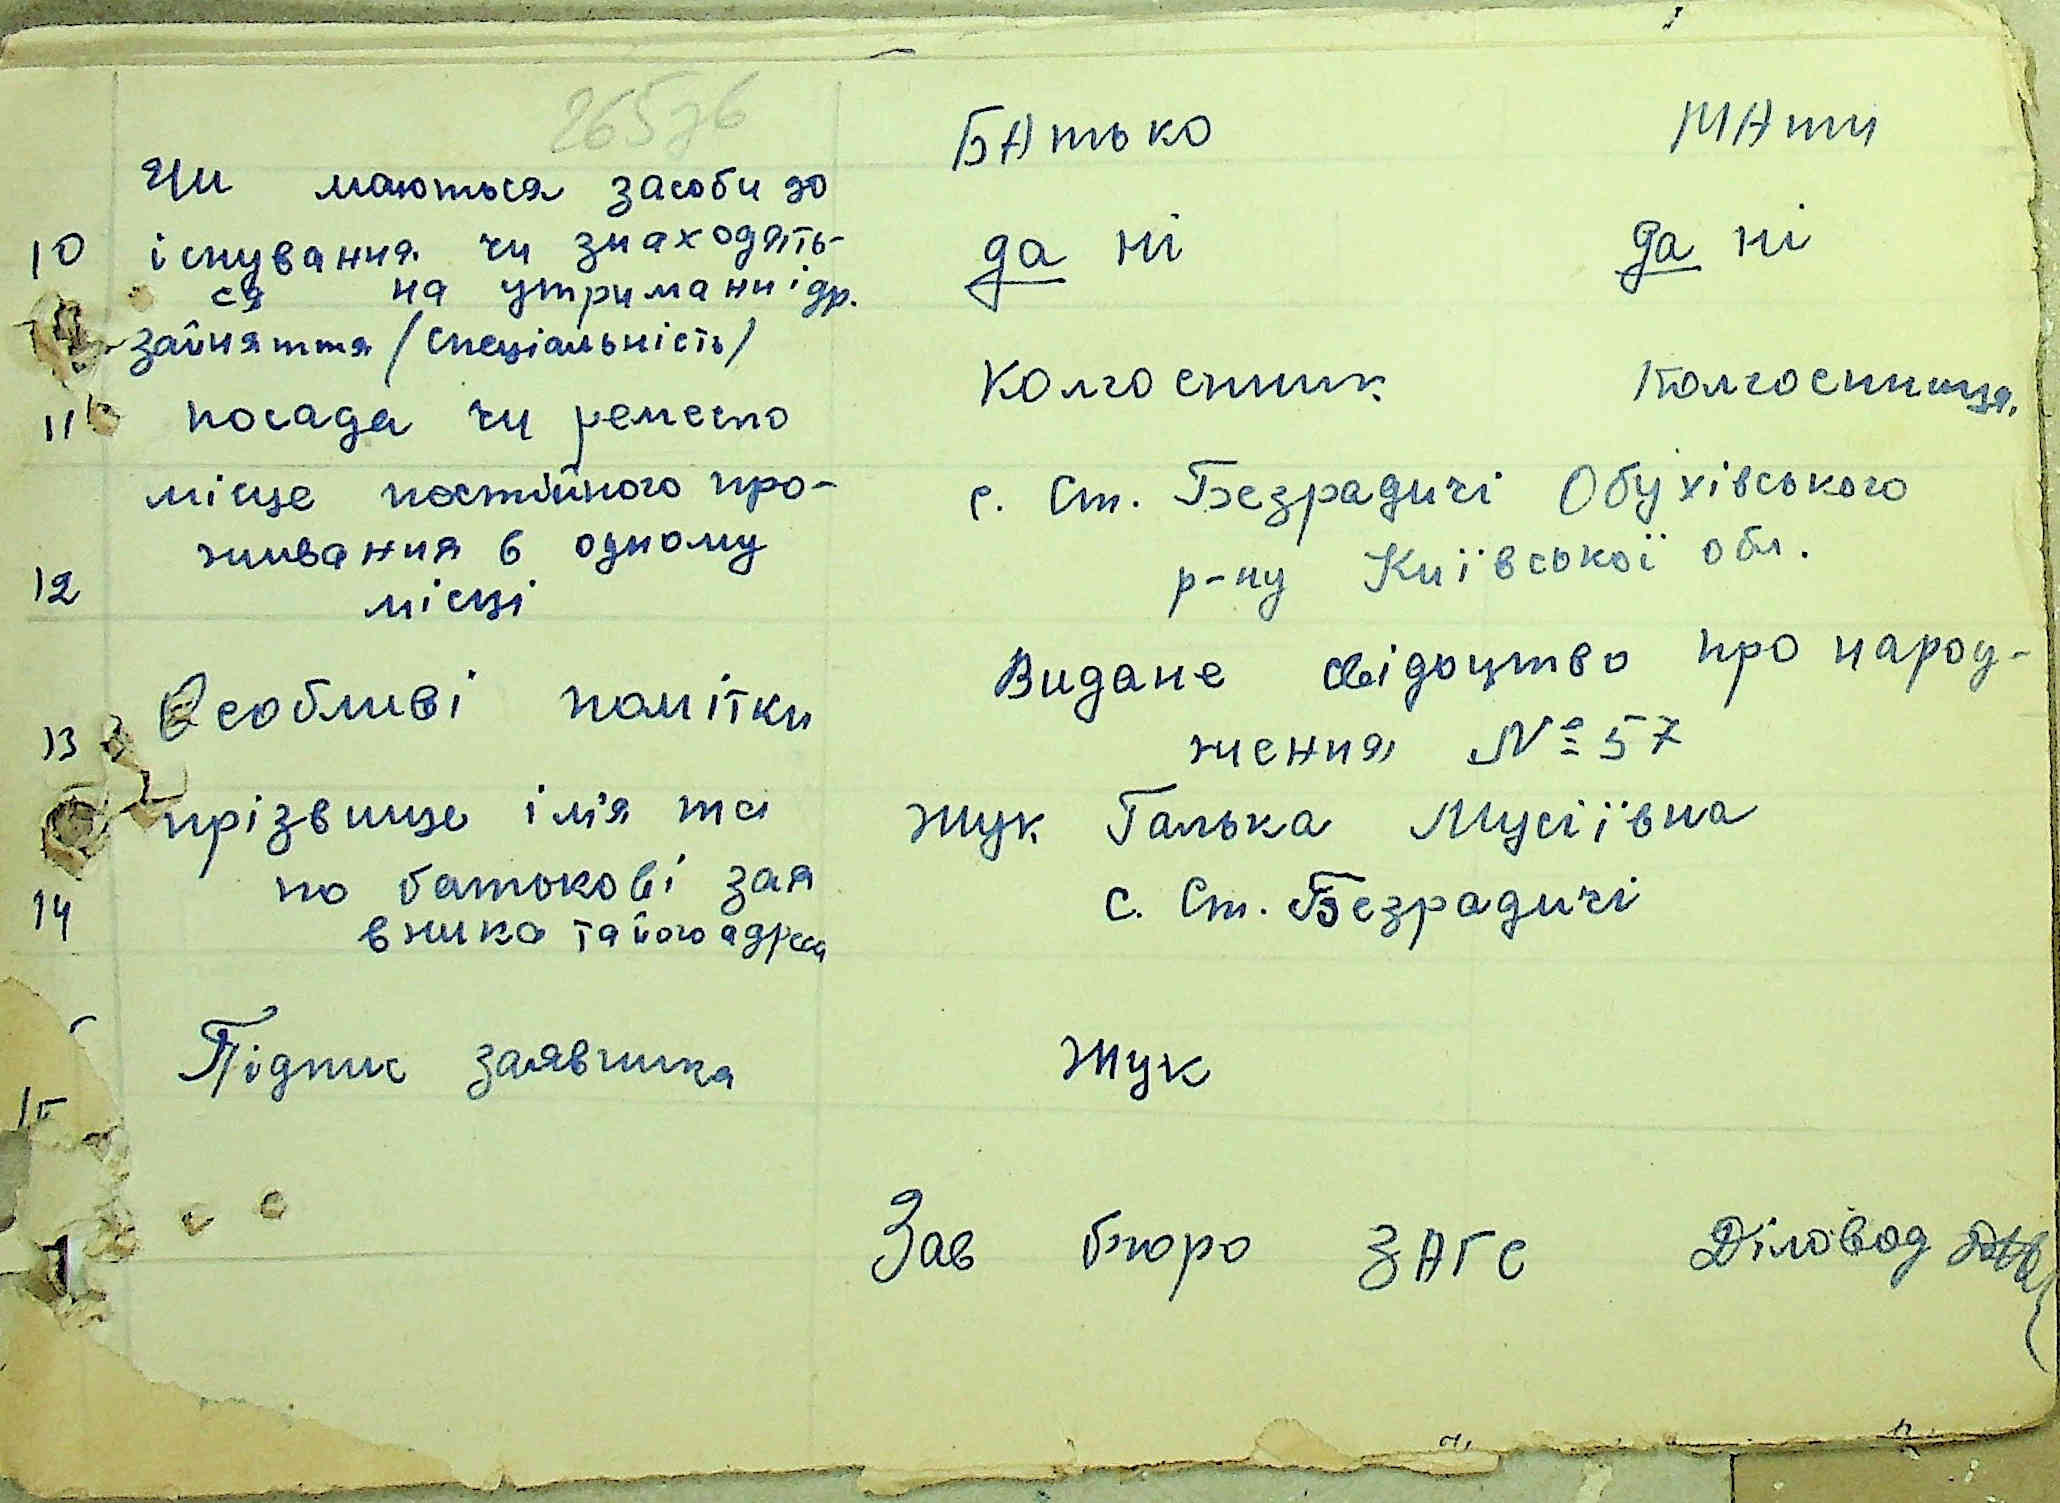 265зв
Батько Мати
Чи маються засоби до
10 існування чи знаходять- да ні да ні
ся на утриманні др.
зайняття /спеціальність/
11 посада чи ремесло Колгоспник Колгоспниця.
місце постійного про- с. Ст. Безрадичі Обухівського
живання в одному р-ну Київської обл.
12 місці
13 Особливі помітки Видане свідоцтво про народ-
ження № 57
прізвище ім'я та Жук Галька Мусіївна
14 по батькові зая с. Ст. Безрадичі
вника та його адреса
15 Підпис заявника Жук
Зав бюро ЗАГС Діловод